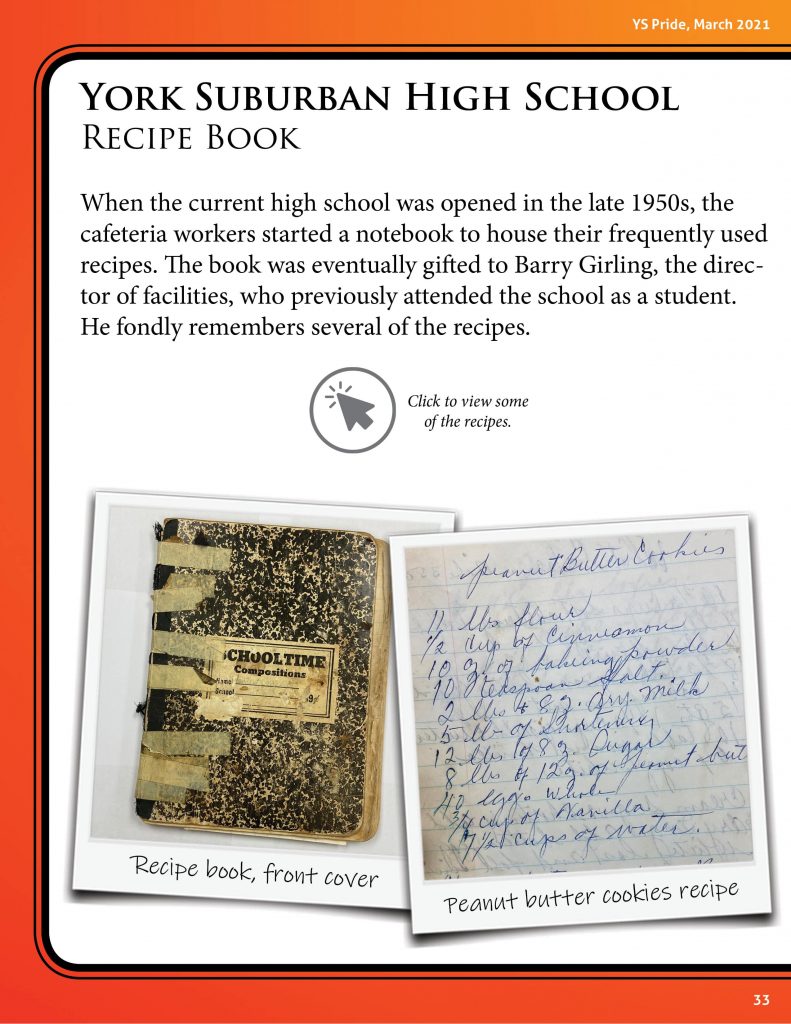 YS Pride, March 2021
York Suburban High School
Recipe Book
When the current high school was opened in the late 1950s, the
cafeteria workers started a notebook to house their frequently used
recipes. The book was eventually gifted to Barry Girling, the direc-
tor of facilities, who previously attended the school as a student.
He fondly remembers several of the recipes.
Click to view some
of the recipes.
CHOOLTIME
Compositions
Name
School
Recipe book, front cover
Peanut Butter Cookies
11 lbs flour
1/2 cup of Cinneamon
10 z. of baking powder
10 teaspoon Salt.
2 lbs + 8 z. dry. Milk
5 lb of Shortening
12 lbs of 8 z. Sugar
8 lbs of 12 z. of peanut but
40 eggs whole
3/4 cup of Vanilla
7 1/2 cups of water.
Peanut butter cookies recipe
33